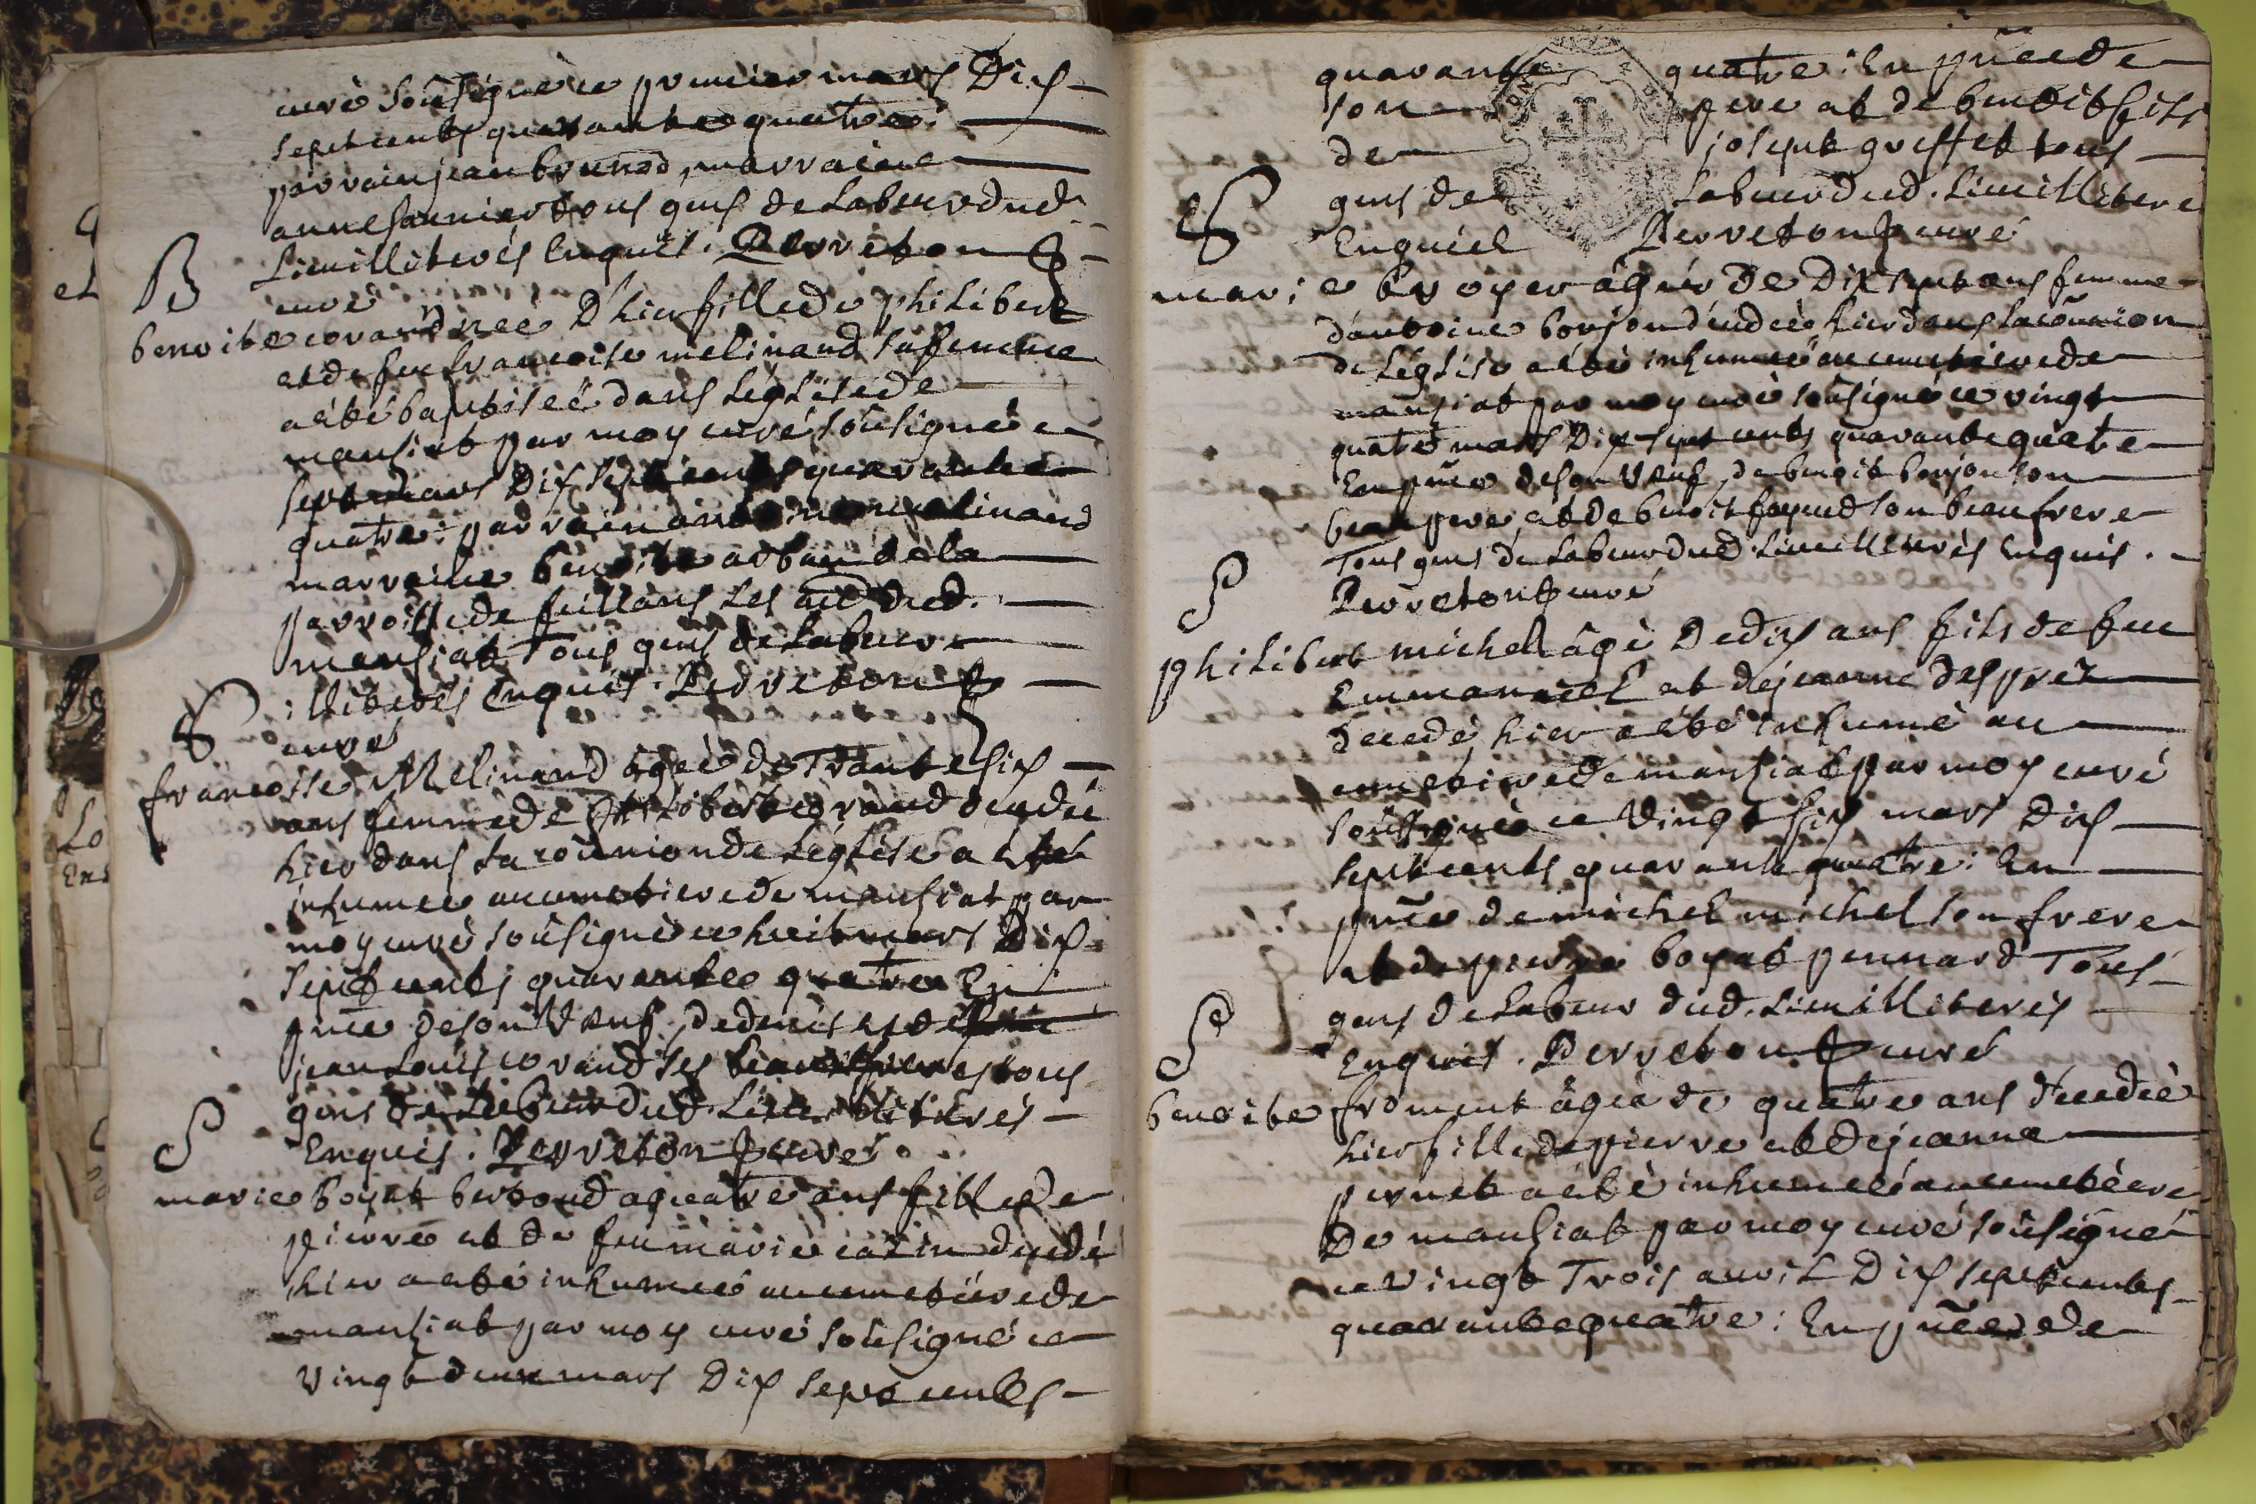 curé soûsigné ce premier mars Dix
sept cents quarante quatre:
parrain jean brunod, marraine
anne saunier tous gens de labeur dud.
Lieu illiterés Enquis. Perreton
curé
B
benoite corand née D'hier fille de philibert
et de feu francoise melinand sa femme
a été baptiseé dans L'église de
mansiat par moy curé soûsigné ce
sept mars Dix sept cents quarante
quatre: parrain antoine melinand
marraine benoite arban de la
parroisse de feillans les aud. dud.
mansiat Tous gens de labeur
illiterés Enquis. Perreton
curé
S
francoise Melinand ageé de Trante six
ans femme de philibert corand decedeé
hier dans la coûmion de L'église a été
inhumeé au cimetiere de mansiat par
moy curé soûsigné ce huit mars Dix
sept cents quarante quatre En
pñce de son Veuf, de denis et de
jean Louis corand ses beaux freres tous
gens de Labeur dud. Lieu illiterés
Enquis. Perreton curé
S
marie boyat bertoud a quatre ans fille de
pierre et de feu marie catin deceдé
hier a été inhumeé au cimetiere de
mansiat par moy curé soûsigné ce
vingt deux mars Dix sept cents
quarante quatre: En pñce de
son pere et de benoit fils
de joseph greffet tous
gens de Labeur dud. Lieu illiteré
Enquis Perreton curé
S
marie broyer âgeé de Dix sept ans femme
d'antoine bonjon décedeé hier dans la coûmion
de L'église a été inhumeé au cimetiere de
mansiat par moy curé soûsigné ce vingt
quatre mars Dix sept cents quarante quatre
En pñce de son Veuf, de benoit bonjon son
beau pere et de benoit son beau frere
Tous gens de Labeur dud. Lieu illiterés Enquis.
Perreton curé
S
philibert michel âgé De dix ans fils de feu
Emmanuel et de jeanne desprez
decedé hier a été inhumé au
cimetiere de mansiat par moy curé
soûsigné ce Vingt six mars Dix
sept cents quarante quatre: En
pñce de michel michel son frere
et de pierre boyat pennard Tous
gens de Labeur dud. Lieu illiterés
Enquis. Perreton curé
S
benoite froment âgeé de quatre ans decedeé
hier fille de pierre et de jeanne
pernet a été inhumeé au cimetiere
De mansiat par moy curé soûsigné
ce vingt Trois avril Dix sept cents
quarante quatre: En pñce de